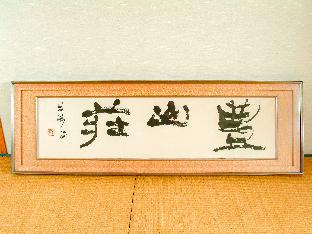 豊山荘